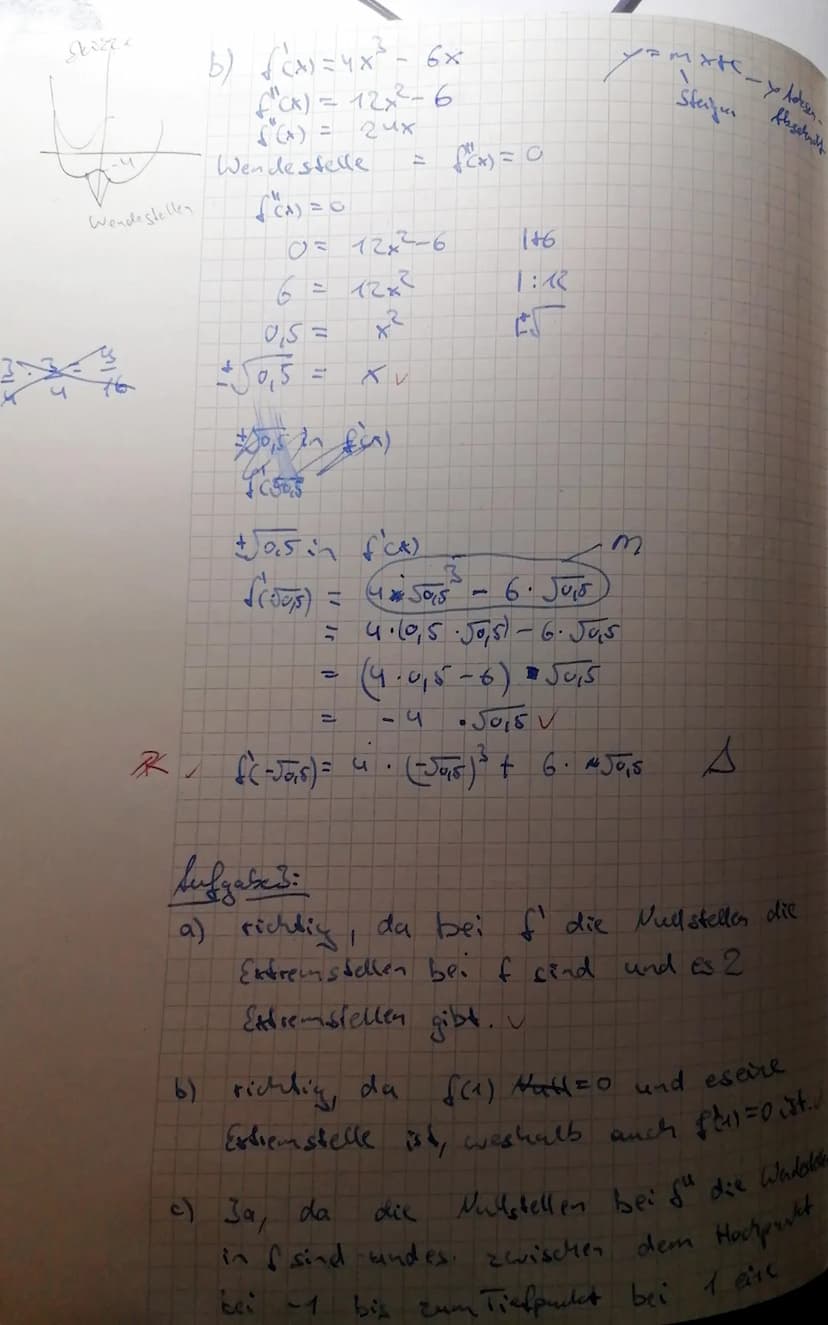 Skizze
-4
Wendestellen
b) f'(x) = 4x³ - 6x
f''(x) = 12x² - 6
f'''(x) = 24x
Wendestelle = f''(x) = 0
f''(x) = 0
0 = 12x² - 6 |+6
6 = 12x² |:12
0,5 = x² |±√
±√0,5 = x ✓
y = mx+c
Steigun
y Achsen-
Abschnitt
3/4 · 3/4 = 9/16
±√0,5 in f'(x)
f'(√0,5
±√0,5 in f'(x) m
f'(√0,5) = 4·√0,5³ - 6·√0,5
= 4·(0,5·√0,5) - 6·√0,5
= (4·0,5 - 6)·√0,5
= -4 ·√0,5 ✓
✓ f'(-√0,5) = 4·(-√0,5)³ + 6·√0,5
Aufgabe 3:
a) richtig, da bei f' die Nullstellen die
Extremstellen bei f sind und es 2
Extremstellen gibt. ✓
b) richtig, da f(1) = 0 und es eine
Extremstelle ist, weshalb auch f'(1) = 0 ist. ✓
c) Ja, da die Nullstellen bei f'' die
in f sind und es zwischen dem Hochpunkt
bei -1 bis zum Tiefpunkt bei 1 eine